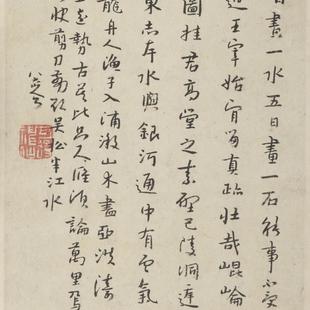 日畫一水五日畫一石能事不受
迫王宰始肯留真跡壯哉崐崘
圖挂君高堂之素壁巴陵洞庭
東赤岸水與銀河通中有雲氣
龍舟人漁子入浦漵山木盡亞洪濤
工遠勢古莫比咫尺應須論萬里焉
快剪刀剪取吳松半江水
八大山人